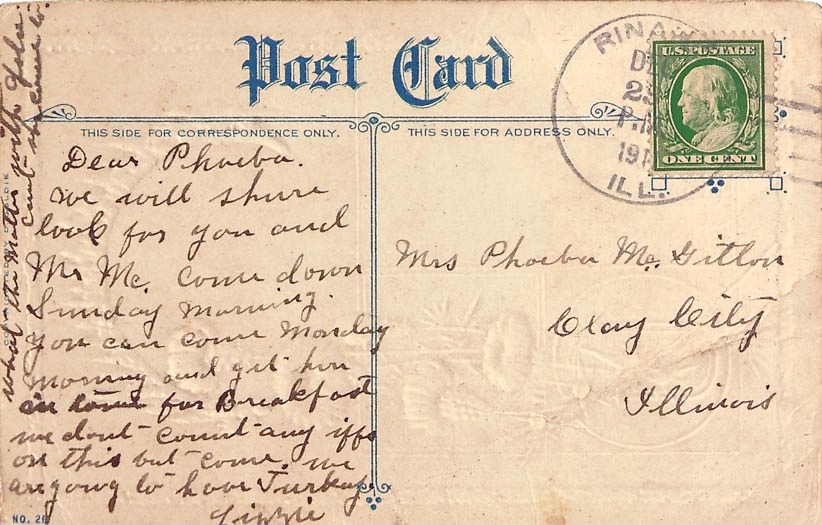 Post Card
THIS SIDE FOR CORRESPONDENCE ONLY.
THIS SIDE FOR ADDRESS ONLY.
U.S. POSTAGE
ONE CENT
RINA
P.M.
191
ILL.
Dear Phoeba.
we will shure
look for you and
Mr Mc. come down
Sunday morning.
you can come Monday
morning and get hear
in time for Breakfast
we dont count any iffs
on this but come. we
are going to have Turkey.
Lizzie
what the Mater with Lela.
cant she come to.
Mrs Phoeba Mc Gitton
Clay City
Illinois
NO. 26